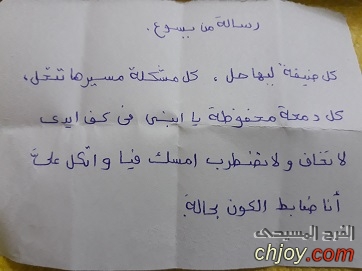 رسالة من يسوع.
كل ضيقة ليها حل، كل مشكلة مسيرها تتحل،
كل دمعة محفوظة يا ابني فى كف ايدى
لا تخاف ولا تضطرب امسك فيا واتكل عليّ
أنا ضابط الكون بحاله.
الفرح المسيحى
chjoy.com